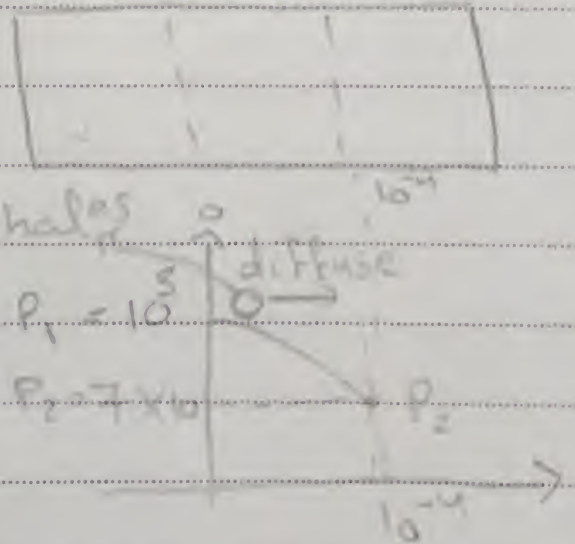 10⁻⁴
holes
diffuse
P₁ = 10⁵
P₂ = 7 × 10
P₂
10⁻⁴